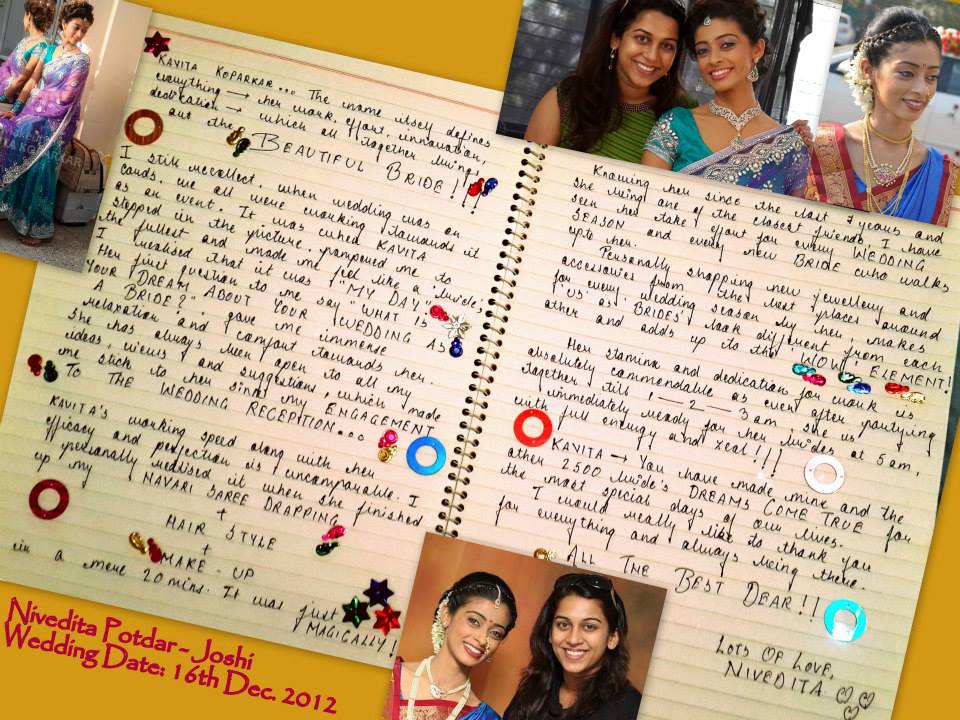 KAVITA KOPARKAR... The name itself defines
everything → her work, effort, innovation,
dedication → which all together bring
out the
BEAUTIFUL BRIDE!!
I still recollect, when wedding was on
cards we all were working towards it
as an event. It was when KAVITA
stepped in the picture, pampered me to
the fullest and made me feel like a bride;
I realised that it was "MY DAY".
Her first question to me say "WHAT IS
YOUR DREAM ABOUT YOUR WEDDING AS
A BRIDE?", gave me immense
relaxation and comfort towards her.
She has always been open to all my
ideas, views and suggestions, which made
me stick to her since my ENGAGEMENT
TO THE WEDDING RECEPTION...
KAVITA'S working speed along with her
efficacy and perfection is uncomparable. I
personally realised it when she finished
up my NAVARI SAREE DRAPPING
+
HAIR STYLE
+
MAKE-UP
in a mere 20 mins. It was just
MAGICALLY!
Knowing her since the last 7 years and
she being one of the closest friends, I have
seen her take effort for every WEDDING
SEASON and every new BRIDE who walks
upto her.
Personally shopping new jewellery and
accessories from the best places around
for every wedding season by her, makes
"US" as 'BRIDES' look different from each
other and adds up to the 'WOW' ELEMENT!
Her stamina and dedication for work is
absolutely commendable as even after partying
together till 1—2—3 am she is
immediately ready for her brides at 5 am,
with full energy and zeal!!!
KAVITA → You have made mine and the
other 2500 bride's DREAMS COME TRUE for
the most special days of our lives.
I would really like to thank you
for everything and always being there.
ALL THE BEST DEAR!!
LOTS OF LOVE,
NIVEDITA
Nivedita Potdar - Joshi
Wedding Date: 16th Dec. 2012